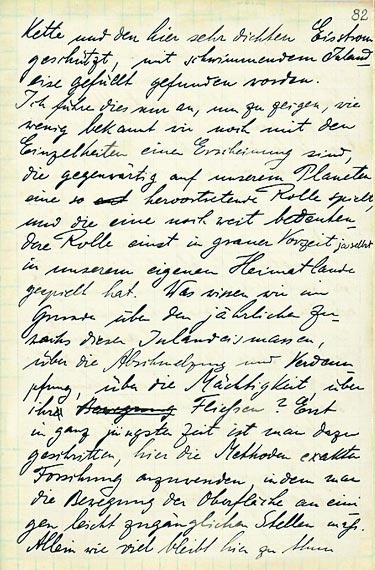 82
Kette und den hier sehr dichten Eisstrom
geschützt, mit schwimmendem Inland-
eise gefüllt gefunden worden.
Ich führe dies nur an, um zu zeigen, wie
wenig bekannt wir noch mit den
Einzelheiten einer Erscheinung sind,
die gegenwärtig auf unserem Planeten
eine so hervortretende Rolle spielt,
und die eine noch weit bedeuten-
dere Rolle einst in grauer Vorzeit ja selbst
in unserem eigenen Heimatlande
gespielt hat. Was wissen wir im
Grunde über den jährlichen Zu-
wachs dieser Inlandeismassen,
über die Abschmelzung und Verdam-
pfung, über die Mächtigkeit, über
ihr Bewegung Fließen? Erst
in ganz jüngster Zeit ist man dazu
geschritten, hier die Methoden exakter
Forschung anzuwenden, indem man
die Bewegung der Oberfläche an eini-
gen leicht zugänglichen Stellen
Allein wie viel bleibt hier zu thun